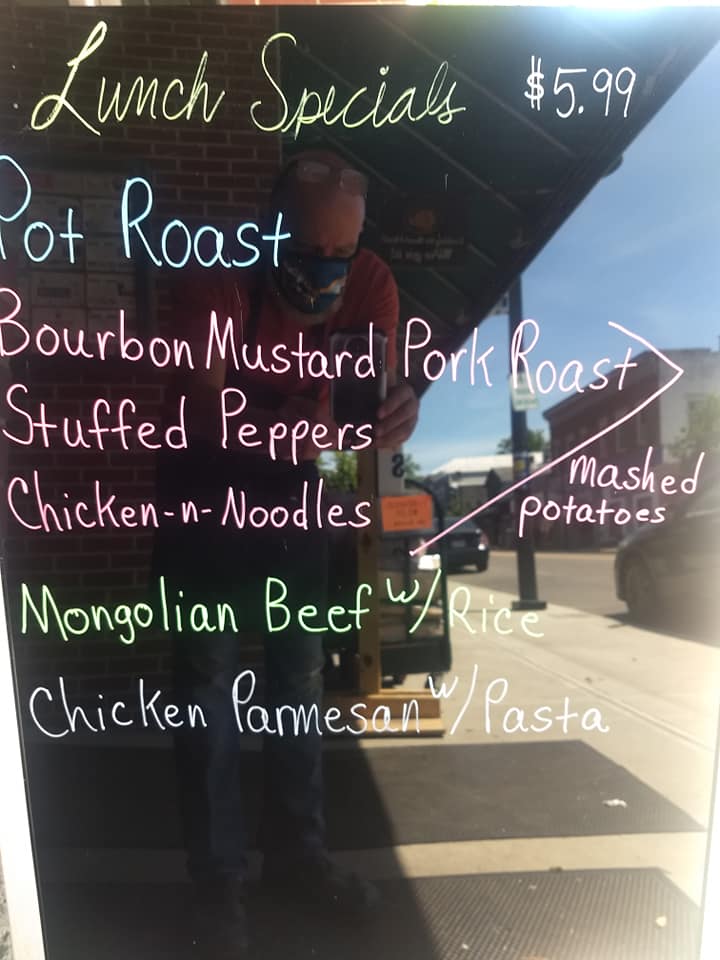 Lunch Specials $5.99
Pot Roast
Bourbon Mustard Pork Roast
Stuffed Peppers
Chicken-n-Noodles
mashed
potatoes
Mongolian Beef w/Rice
Chicken Parmesan w/Pasta